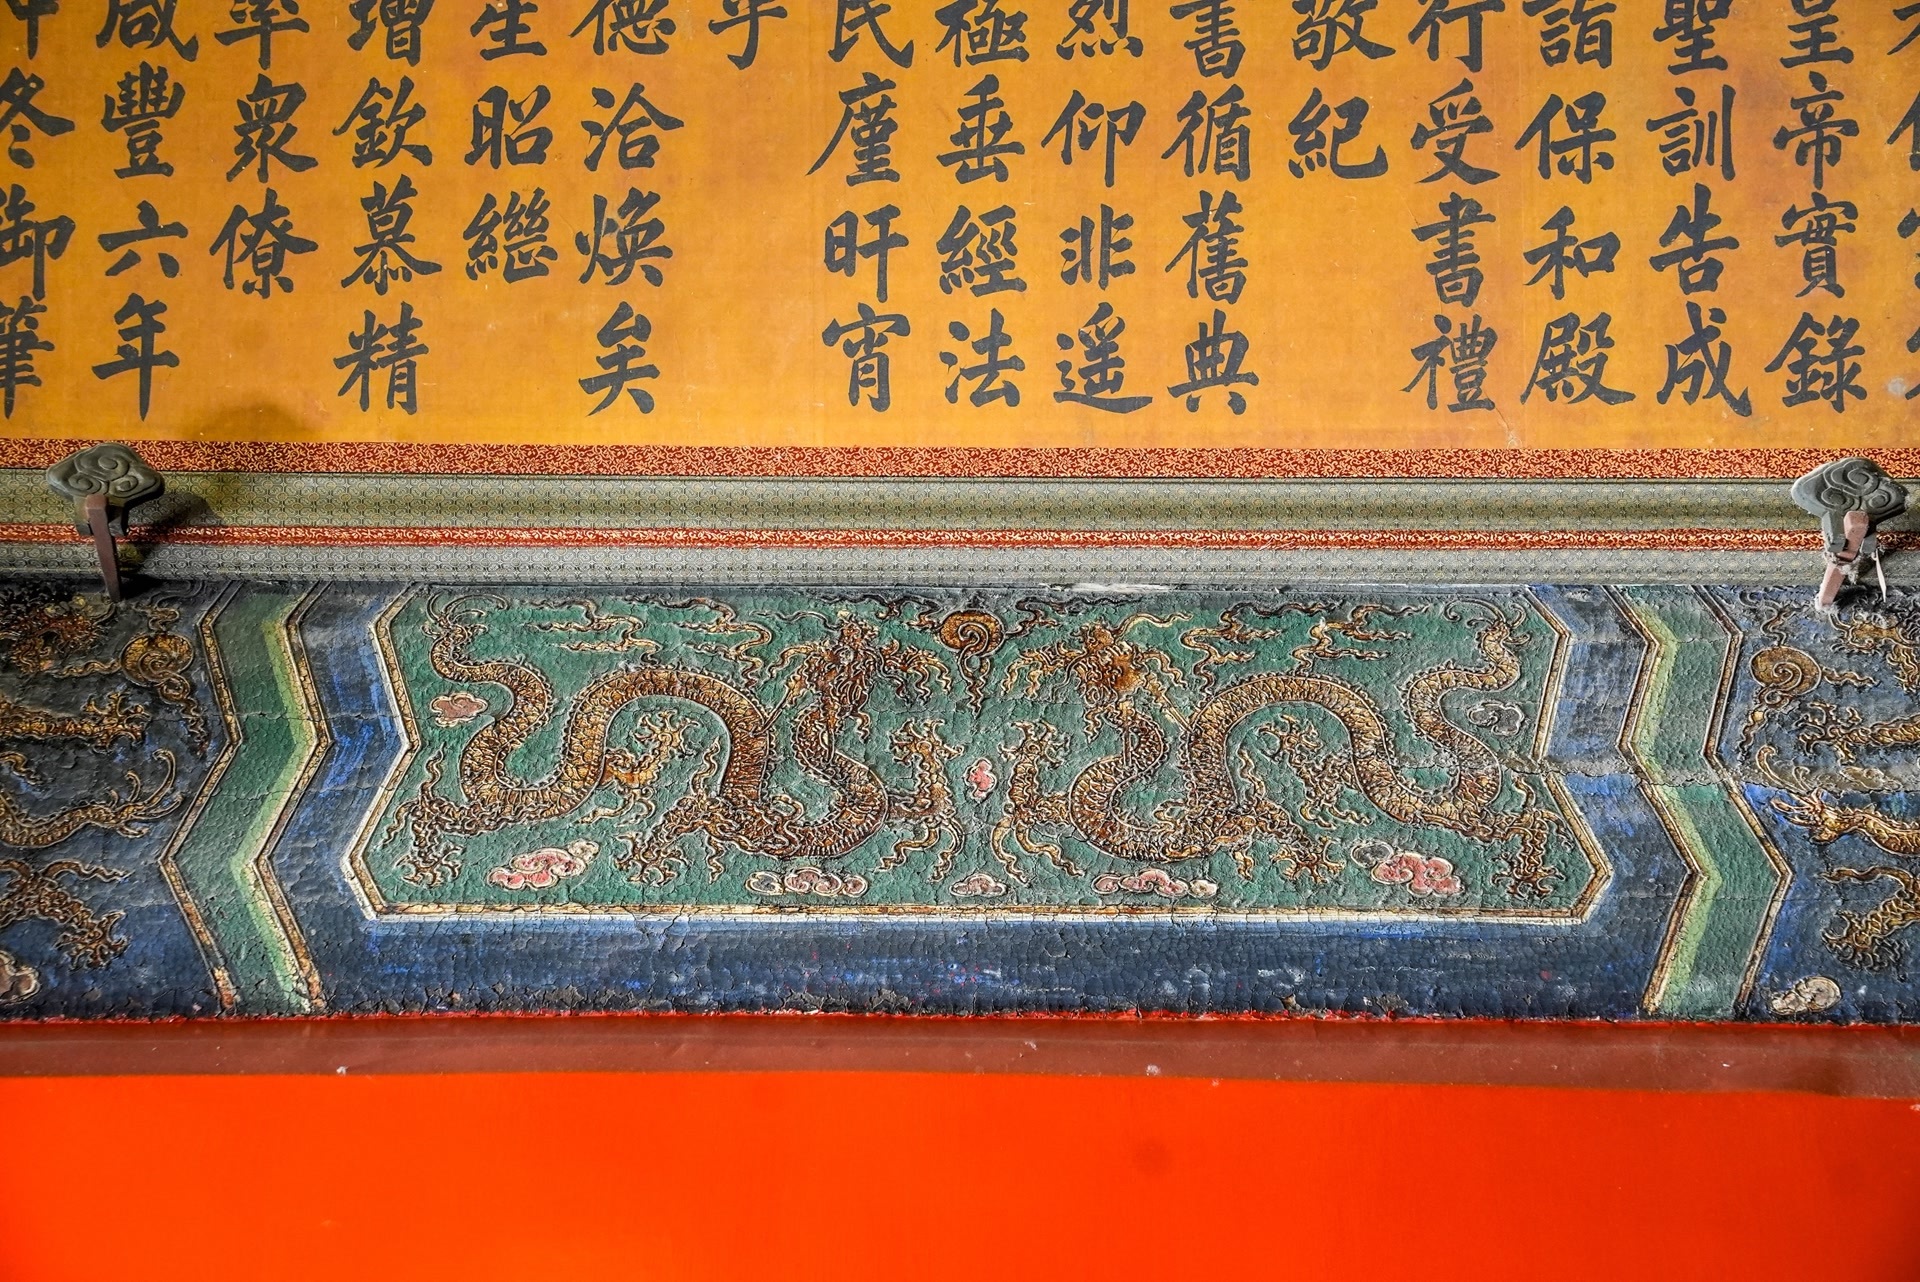 皇帝實錄
聖訓告成
詣保和殿
行受書禮
敬紀
書循舊典
烈仰非遥
極垂經法
民廑旰宵
乎
德洽煥矣
生昭繼
增欽慕精
率衆僚
咸豐六年
冬御筆